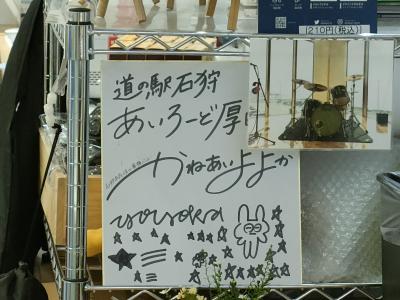 210円(税込)
道の駅石狩
あいろーど厚
かねあいよよか
yoyoka